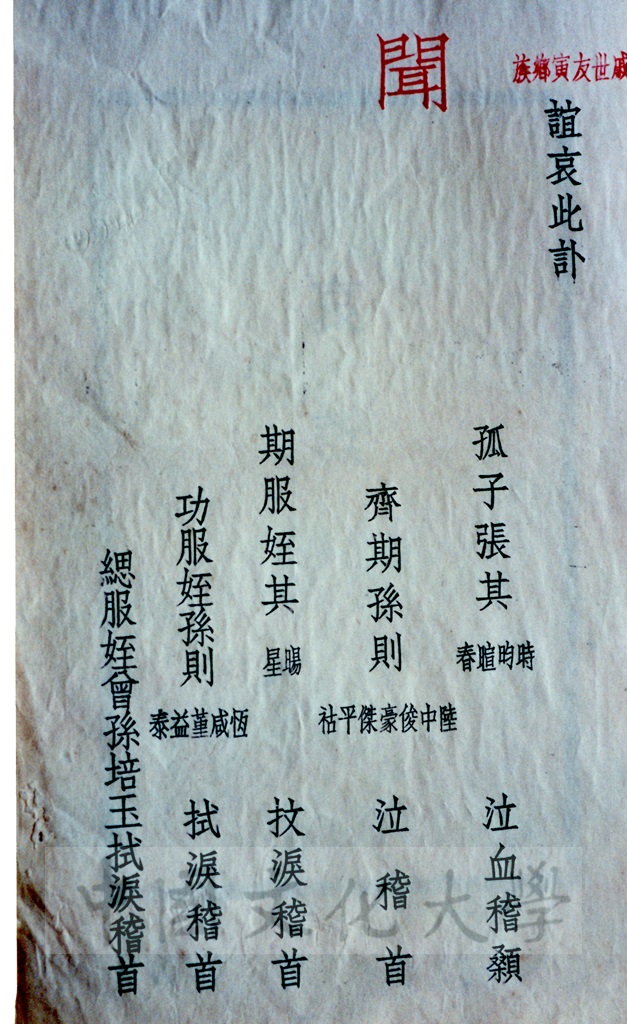 聞
戚世友寅鄉族
誼哀此訃
孤子張其
時昀暄春
泣血稽顙
齊期孫則
陸中俊豪傑平祜
泣稽首
期服姪其
暘星
抆淚稽首
功服姪孫則
恆咸堇益泰
拭淚稽首
緦服姪曾孫培玉拭淚稽首
中國文化大學